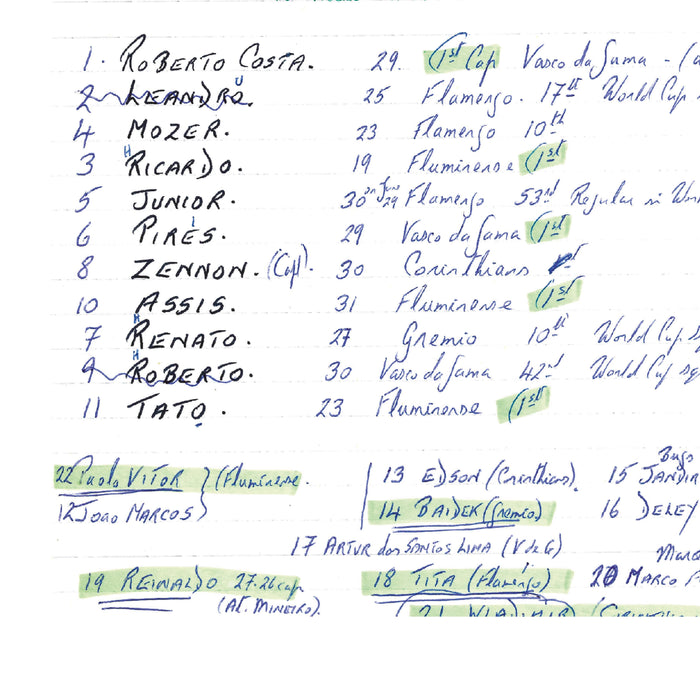 1. ROBERTO COSTA. 29. (1st Cap Vasco da Gama - (a
2 LEANDRO. 25 Flamengo. 17th World Cup
4 MOZER. 23 Flamengo 10th
3 RICARDO. 19 Fluminense (1st
5 JUNIOR. 30 on June 29 Flamengo 53rd Regular in Wor
6 PIRES. 29 Vasco da Gama (1st
8 ZENNON. (Capt). 30 Corinthians
10 ASSIS. 31 Fluminense (1st
7 RENATO. 27 Gremio 10th World Cup sq
9 ROBERTO. 30 Vasco da Gama 42nd World Cup sq
11 TATO. 23 Fluminense (1st
22 Paolo VITOR } (Fluminense.
12 Joao MARCOS
13 EDSON (Corinthians). 15 JANDIR
14 BAIDEK (Gremio) 16 DELEY
17 ARTUR dos SANTOS LIMA (V de G)
19 REINALDO 27. 26 cap (AT. MINEIRO).
18 TITA (Flamengo) 20 MARCO
21 WLADIMIR (Corinthian